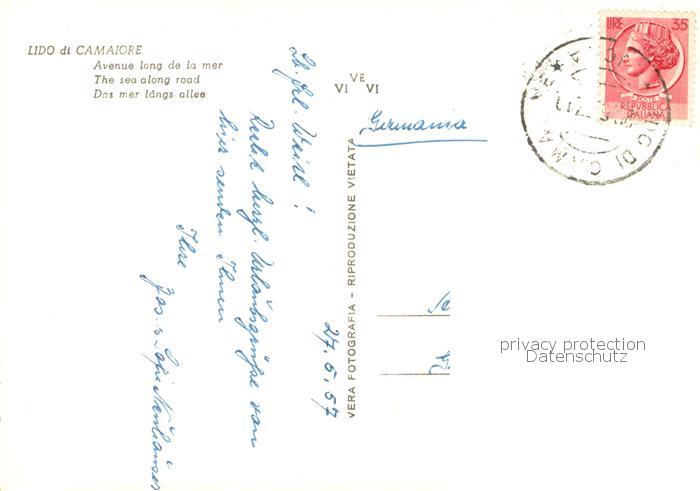 LIDO di CAMAIORE
Avenue long de la mer
The sea-along road
Das mer längs allee
VE
VI VI
VERA FOTOGRAFIA - RIPRODUZIONE VIETATA
27.5.57
Lb. Frl. Weixl!
Recht herzl. Urlaubsgrüße von
hier senden Ihnen
Ihre
Jos. u.
Germania
LIRE 35
POSTE
REPVBBLICA
ITALIANA
DI CAMA
privacy protection
Datenschutz